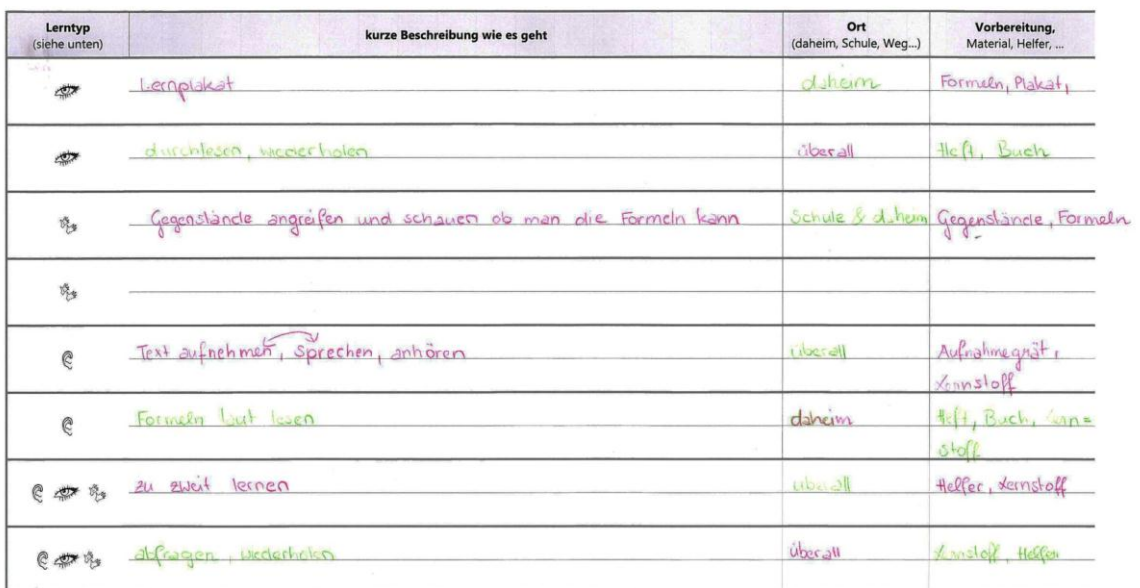 Lerntyp
(siehe unten)
kurze Beschreibung wie es geht
Ort
(daheim, Schule, Weg...)
Vorbereitung,
Material, Helfer, ...
Lernplakat
daheim
Formeln, Plakat,
durchlesen, wiederholen
überall
Heft, Buch
Gegenstände angreifen und schauen ob man die Formeln kann
Schule & daheim
Gegenstände, Formeln
Text aufnehmen, sprechen, anhören
überall
Aufnahmegrät,
Lernstoff
Formeln laut lesen
daheim
Heft, Buch, Lern=
stoff
zu zweit lernen
überall
Helfer, Lernstoff
abfragen, wiederholen
überall
Lernstoff, Helfer